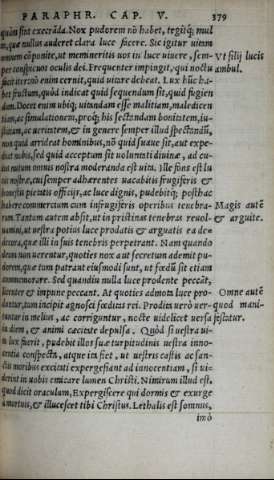 PARAPHR. CAP. V. 379
quàm sint execrāda. Nox pudorem nō habet, tegitq́; mul
ta, quæ nullus auderet clara luce facere. Sic igitur uitam
omnem cōponite, ut memineritis uos in luce uiuere, sem- Vt filij lucis
per conspicuos oculis dei. Frequenter impingit, qui noctu ambul.
facit iter: nō enim cernit, quid uitare debeat. Lux hūc ha-
bet fructum, quòd indicat quid sequendum sit, quid fugien
dum. Docet enim ubiq; uitandam esse malitiam, maledicen
tiam, ac simulationem, proq́; his sectandam bonitatem, iu-
stitiam, ac ueritatem, & in genere semper illud spectandū,
non quid arrideat hominibus, nō quid suaue sit, aut expe-
diat nobis, sed quid acceptum sit uoluntati diuinæ, ad cu-
ius nutum omnis nostra moderanda est uita. Ille fons est lu
cis nostræ, cui semper adhærentes uacabitis frugiferis &
honestis pietatis officijs, ac luce dignis, pudebitq́; posthac
habere commercium cum infrugiferis operibus tenebra- Magis autē
rum. Tantum autem absit, ut in pristinas tenebras reuol- & arguite.
uamini, ut uestra potius luce prodatis & arguatis ea de-
decora, quæ illi in suis tenebris perpetrant. Nam quando
deum non uerentur, quoties nox aut secretum ademit pu-
dorem, quæ tam patrant eiusmodi sunt, ut fœdū sit etiam
commemorare. Sed quandiu nulla luce prodente peccāt,
licenter & impune peccant. At quoties admota luce pro- Omne autē
duntur, tum incipit agnosci fœditas rei. Prodita uerò uer- quod mani-
tuntur in melius, ac corriguntur, nocte uidelicet uersa festatur.
in diem, & animi cæcitate depulsa. Quòd si uestra ui-
ta lux fuerit, pudebit illos suæ turpitudinis uestra inno-
centia conspecta, atque ita fiet, ut uestris castis ac san-
ctis moribus excitati expergefiant ad innocentiam, si ui-
derint in uobis emicare lumen Christi. Nimirum illud est,
quod dicit oraculum, Expergiscere qui dormis & exurge
à mortuis, & illucescet tibi Christus. Lethalis est somnus,
imò